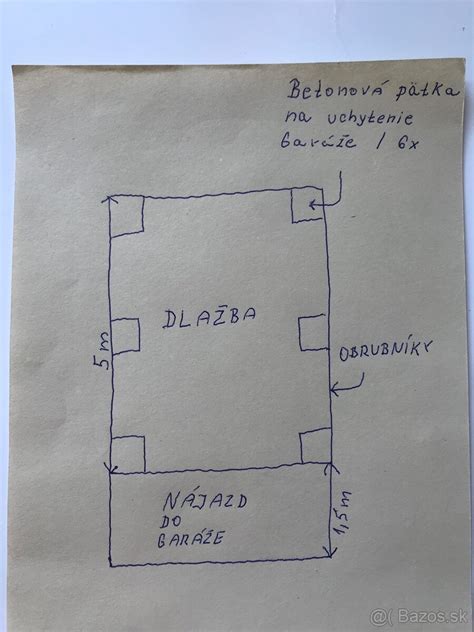 Betonová pätka
na uchytenie
Garáže / 6x
DLAŽBA
5m
OBRUBNÍKY
NÁJAZD
DO
GARÁŽE
1,5m
@( Bazos.sk